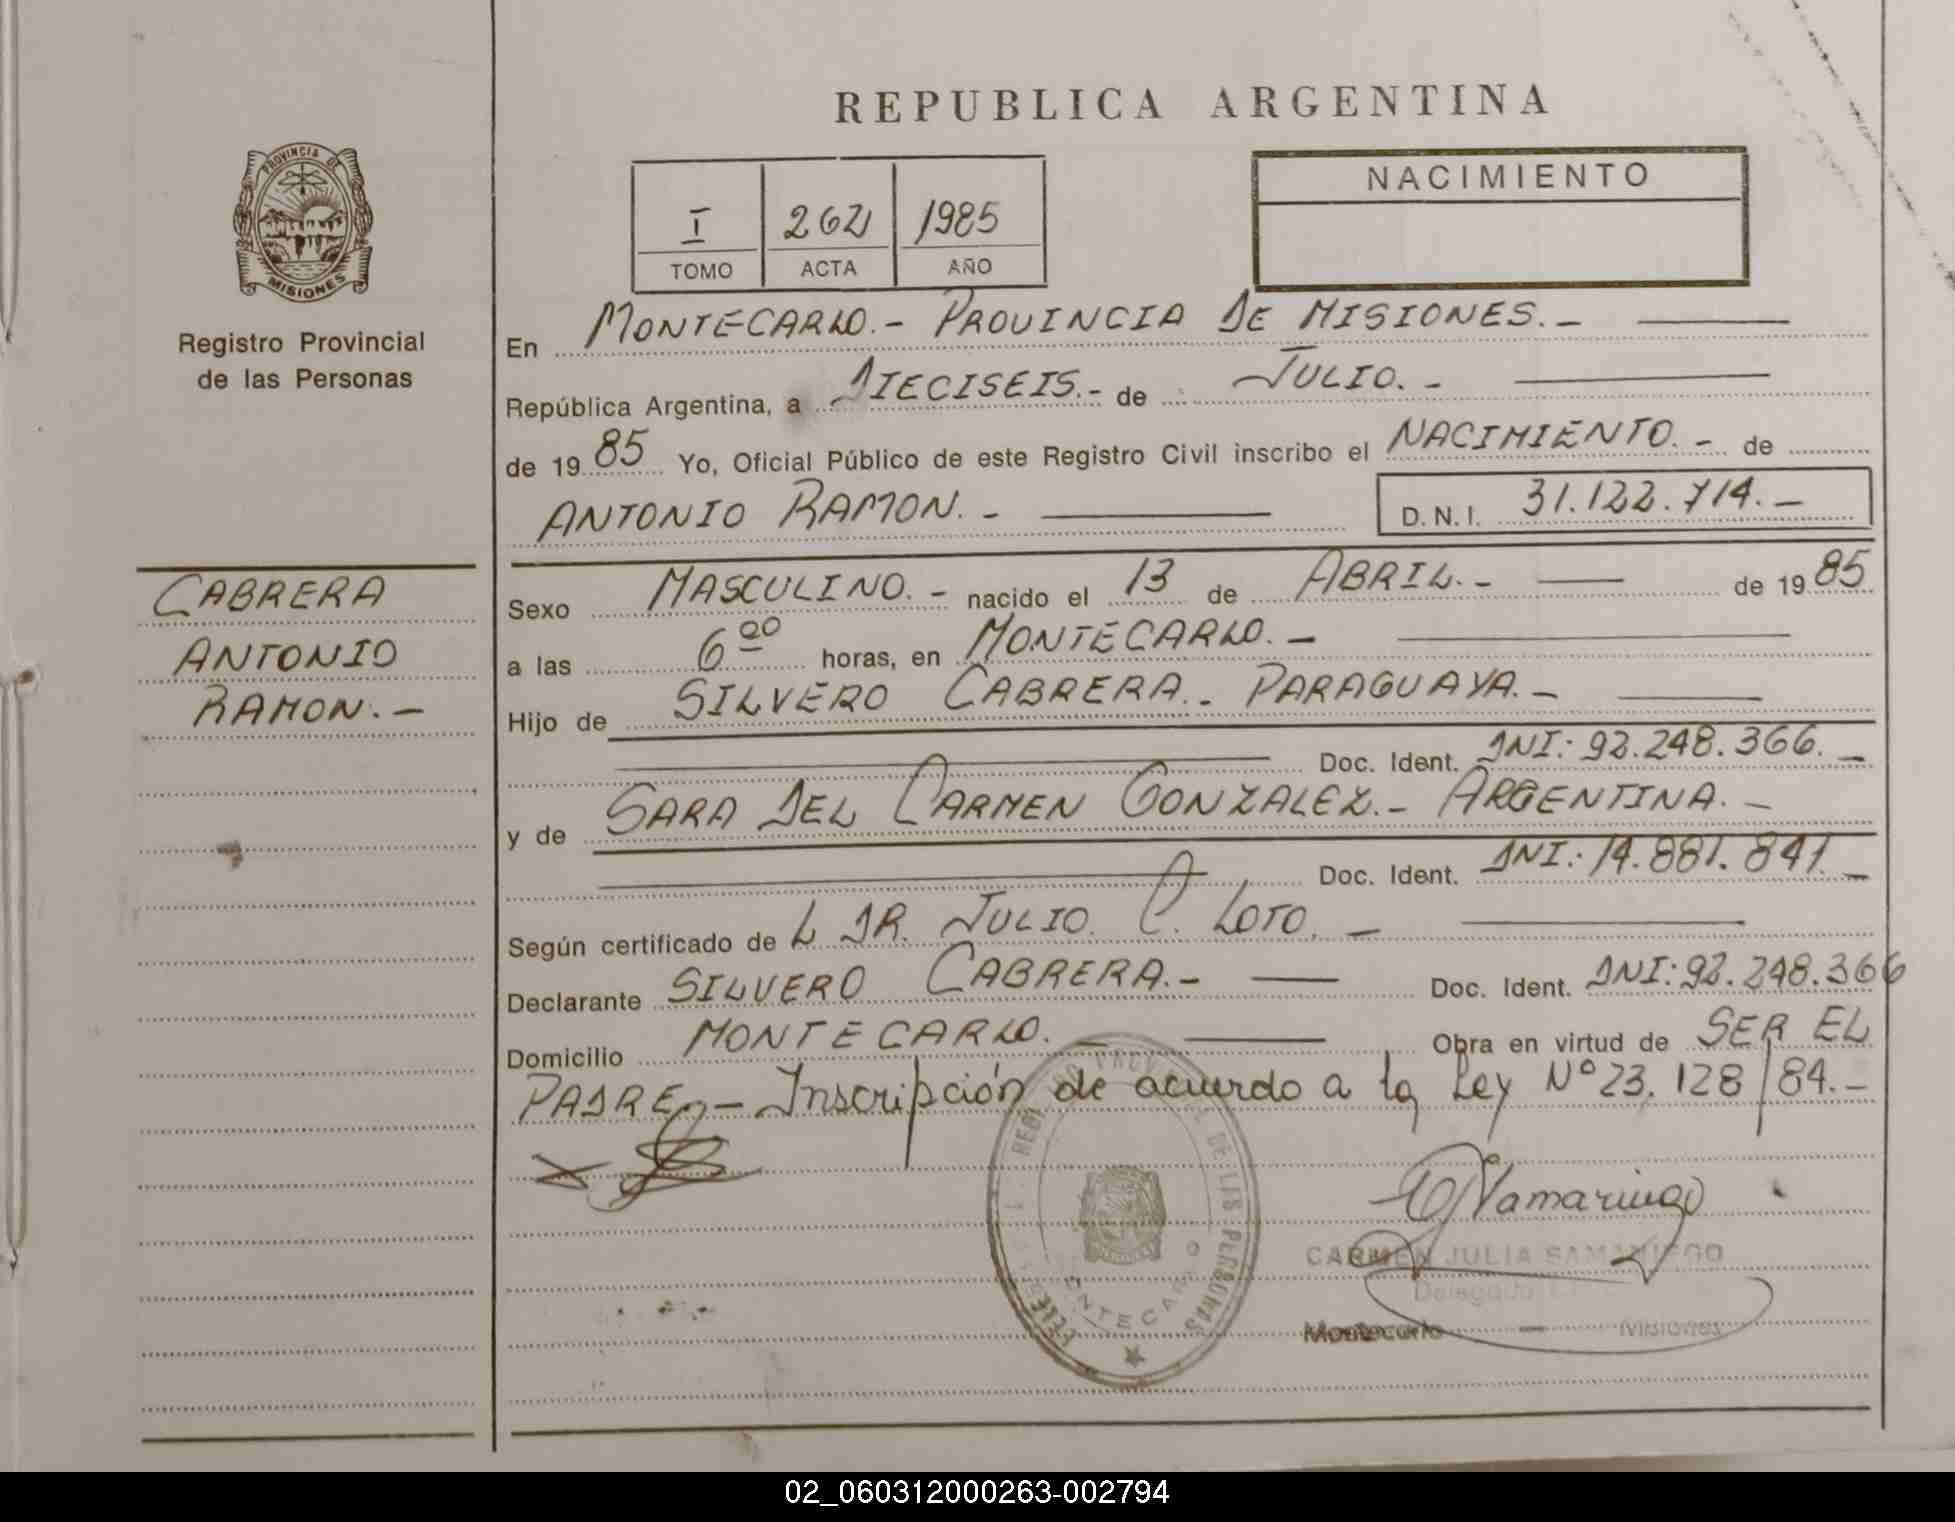 REPUBLICA ARGENTINA
PROVINCIA DE
MISIONES
Registro Provincial
de las Personas
NACIMIENTO
I 262 1985
TOMO ACTA AÑO
En MONTECARLO.- PROVINCIA DE MISIONES.-
República Argentina, a DIECISEIS.- de JULIO.-
de 1985 Yo, Oficial Público de este Registro Civil inscribo el NACIMIENTO.- de
ANTONIO RAMON.- D.N.I. 31.122.714.-
CABRERA
ANTONIO
RAMON.-
Sexo MASCULINO.- nacido el 13 de ABRIL.- de 1985
a las 6 00 horas, en MONTECARLO.-
Hijo de SILVERO CABRERA.- PARAGUAYA.-
Doc. Ident. DNI: 92.248.366.-
y de SARA DEL CARMEN GONZALEZ.- ARGENTINA.-
Doc. Ident. DNI: 14.881.841.-
Según certificado de L DR. JULIO. C. LOTO.-
Declarante SILVERO CABRERA.- Doc. Ident. DNI: 92.248.366
Domicilio MONTECARLO.- Obra en virtud de SER EL
PADRE.- Inscripción de acuerdo a la Ley N° 23.128/84.-
DE LAS PERSONAS
MONTECARLO
CARMEN JULIA SAMANIEGO
Delegado
Montecarlo - Misiones
02_060312000263-002794